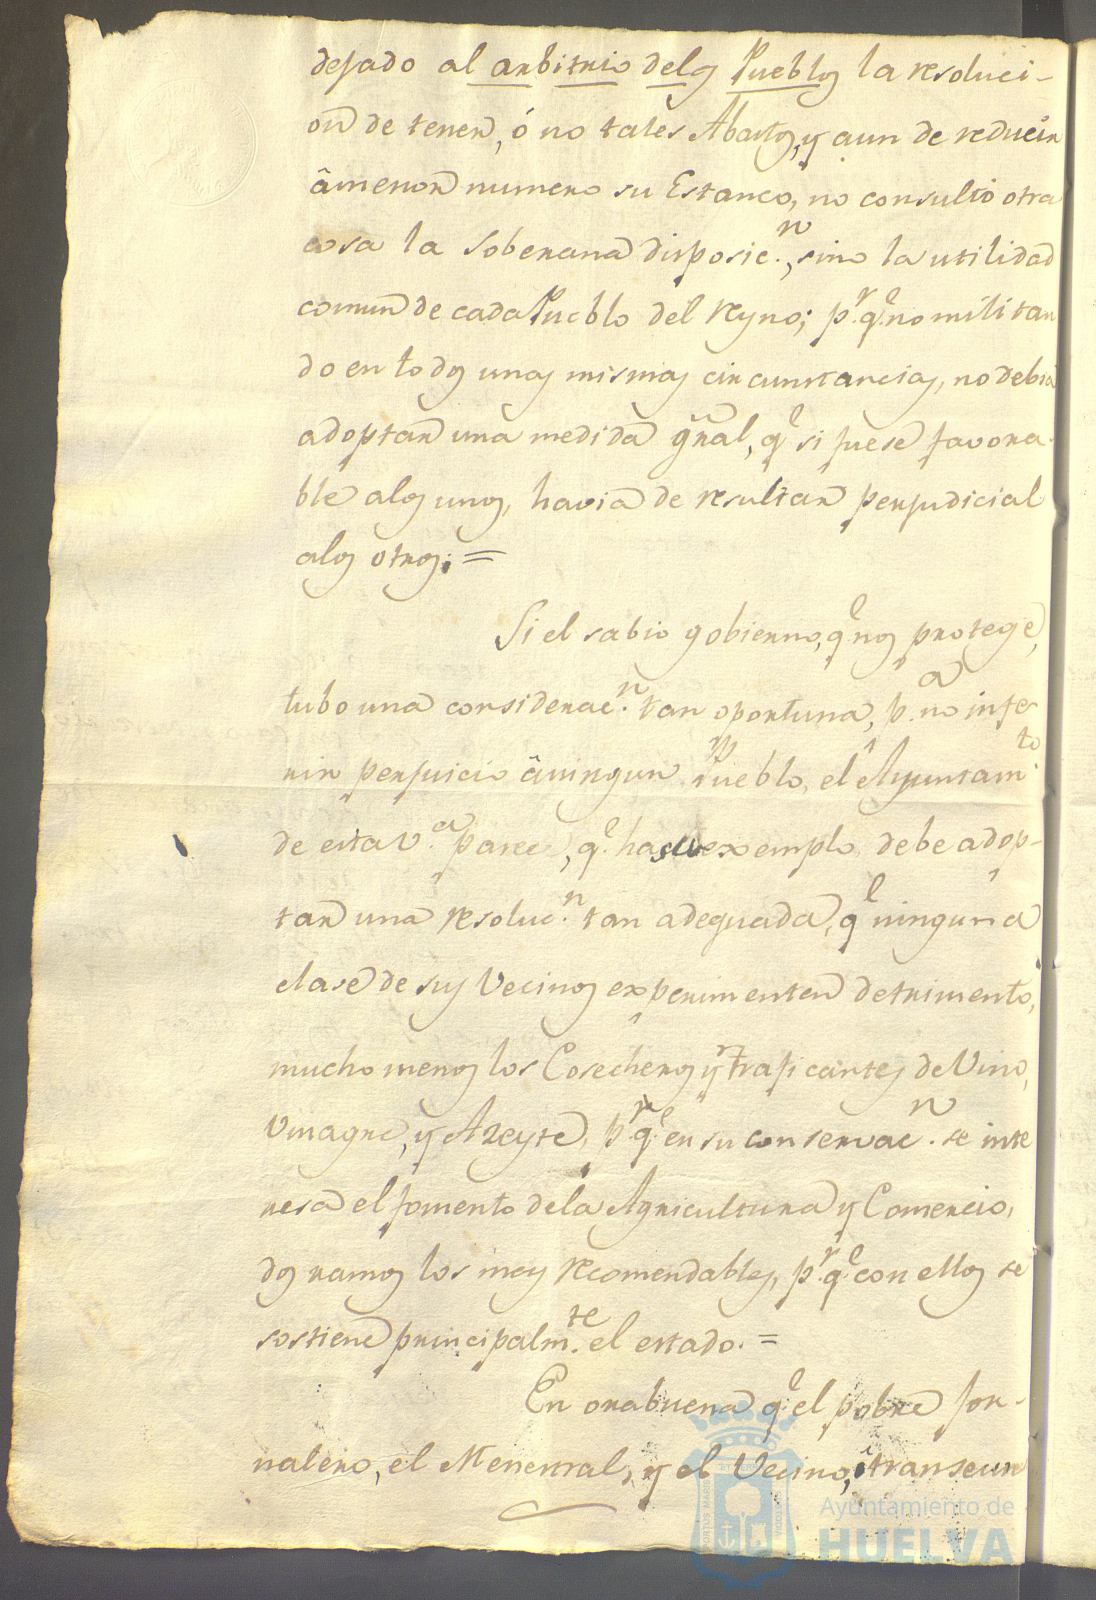 dejado al arbitrio delos Pueblos la resoluci-
on de tener, ó no tales Abastos, y aun de reducir
âmenor numero su Estanco, no consultó otra
cosa la soberana disposic.n, sino la utilidad
comun de cada Pueblo del Reyno; p.r q.e no militan
do en todos unas mismas circunstancias, no debia
adoptar una medida gñal, q.e si fuese favora-
ble alos unos, havia de resultar perjudicial
alos otros; =
Si el sabio gobierno, q.e nos protege,
tubo una considerac.n tan oportuna, p.a no infe
rir perjuicio âningun Pueblo, el Ayuntam.to
de esta V.a parece, q.e ha su exemplo debe adop-
tar una resoluc.n tan adequada, q.e ninguna
clase de sus Vecinos experimenten detrimento,
mucho menos los Cosecheros y traficantes de Vino,
Vinagre, y Azeyte, p.r q.e en su conservac.n se inte
resa el fomento dela Agricultura y Comercio,
dos ramos los mas recomendables, p.r q.e con ellos se
sostiene principalm.te el estado. =
En orabuena q.e el pobre jor-
nalero, el Menestral, y el Vecino, ô transeun
Ayuntamiento de
HUELVA